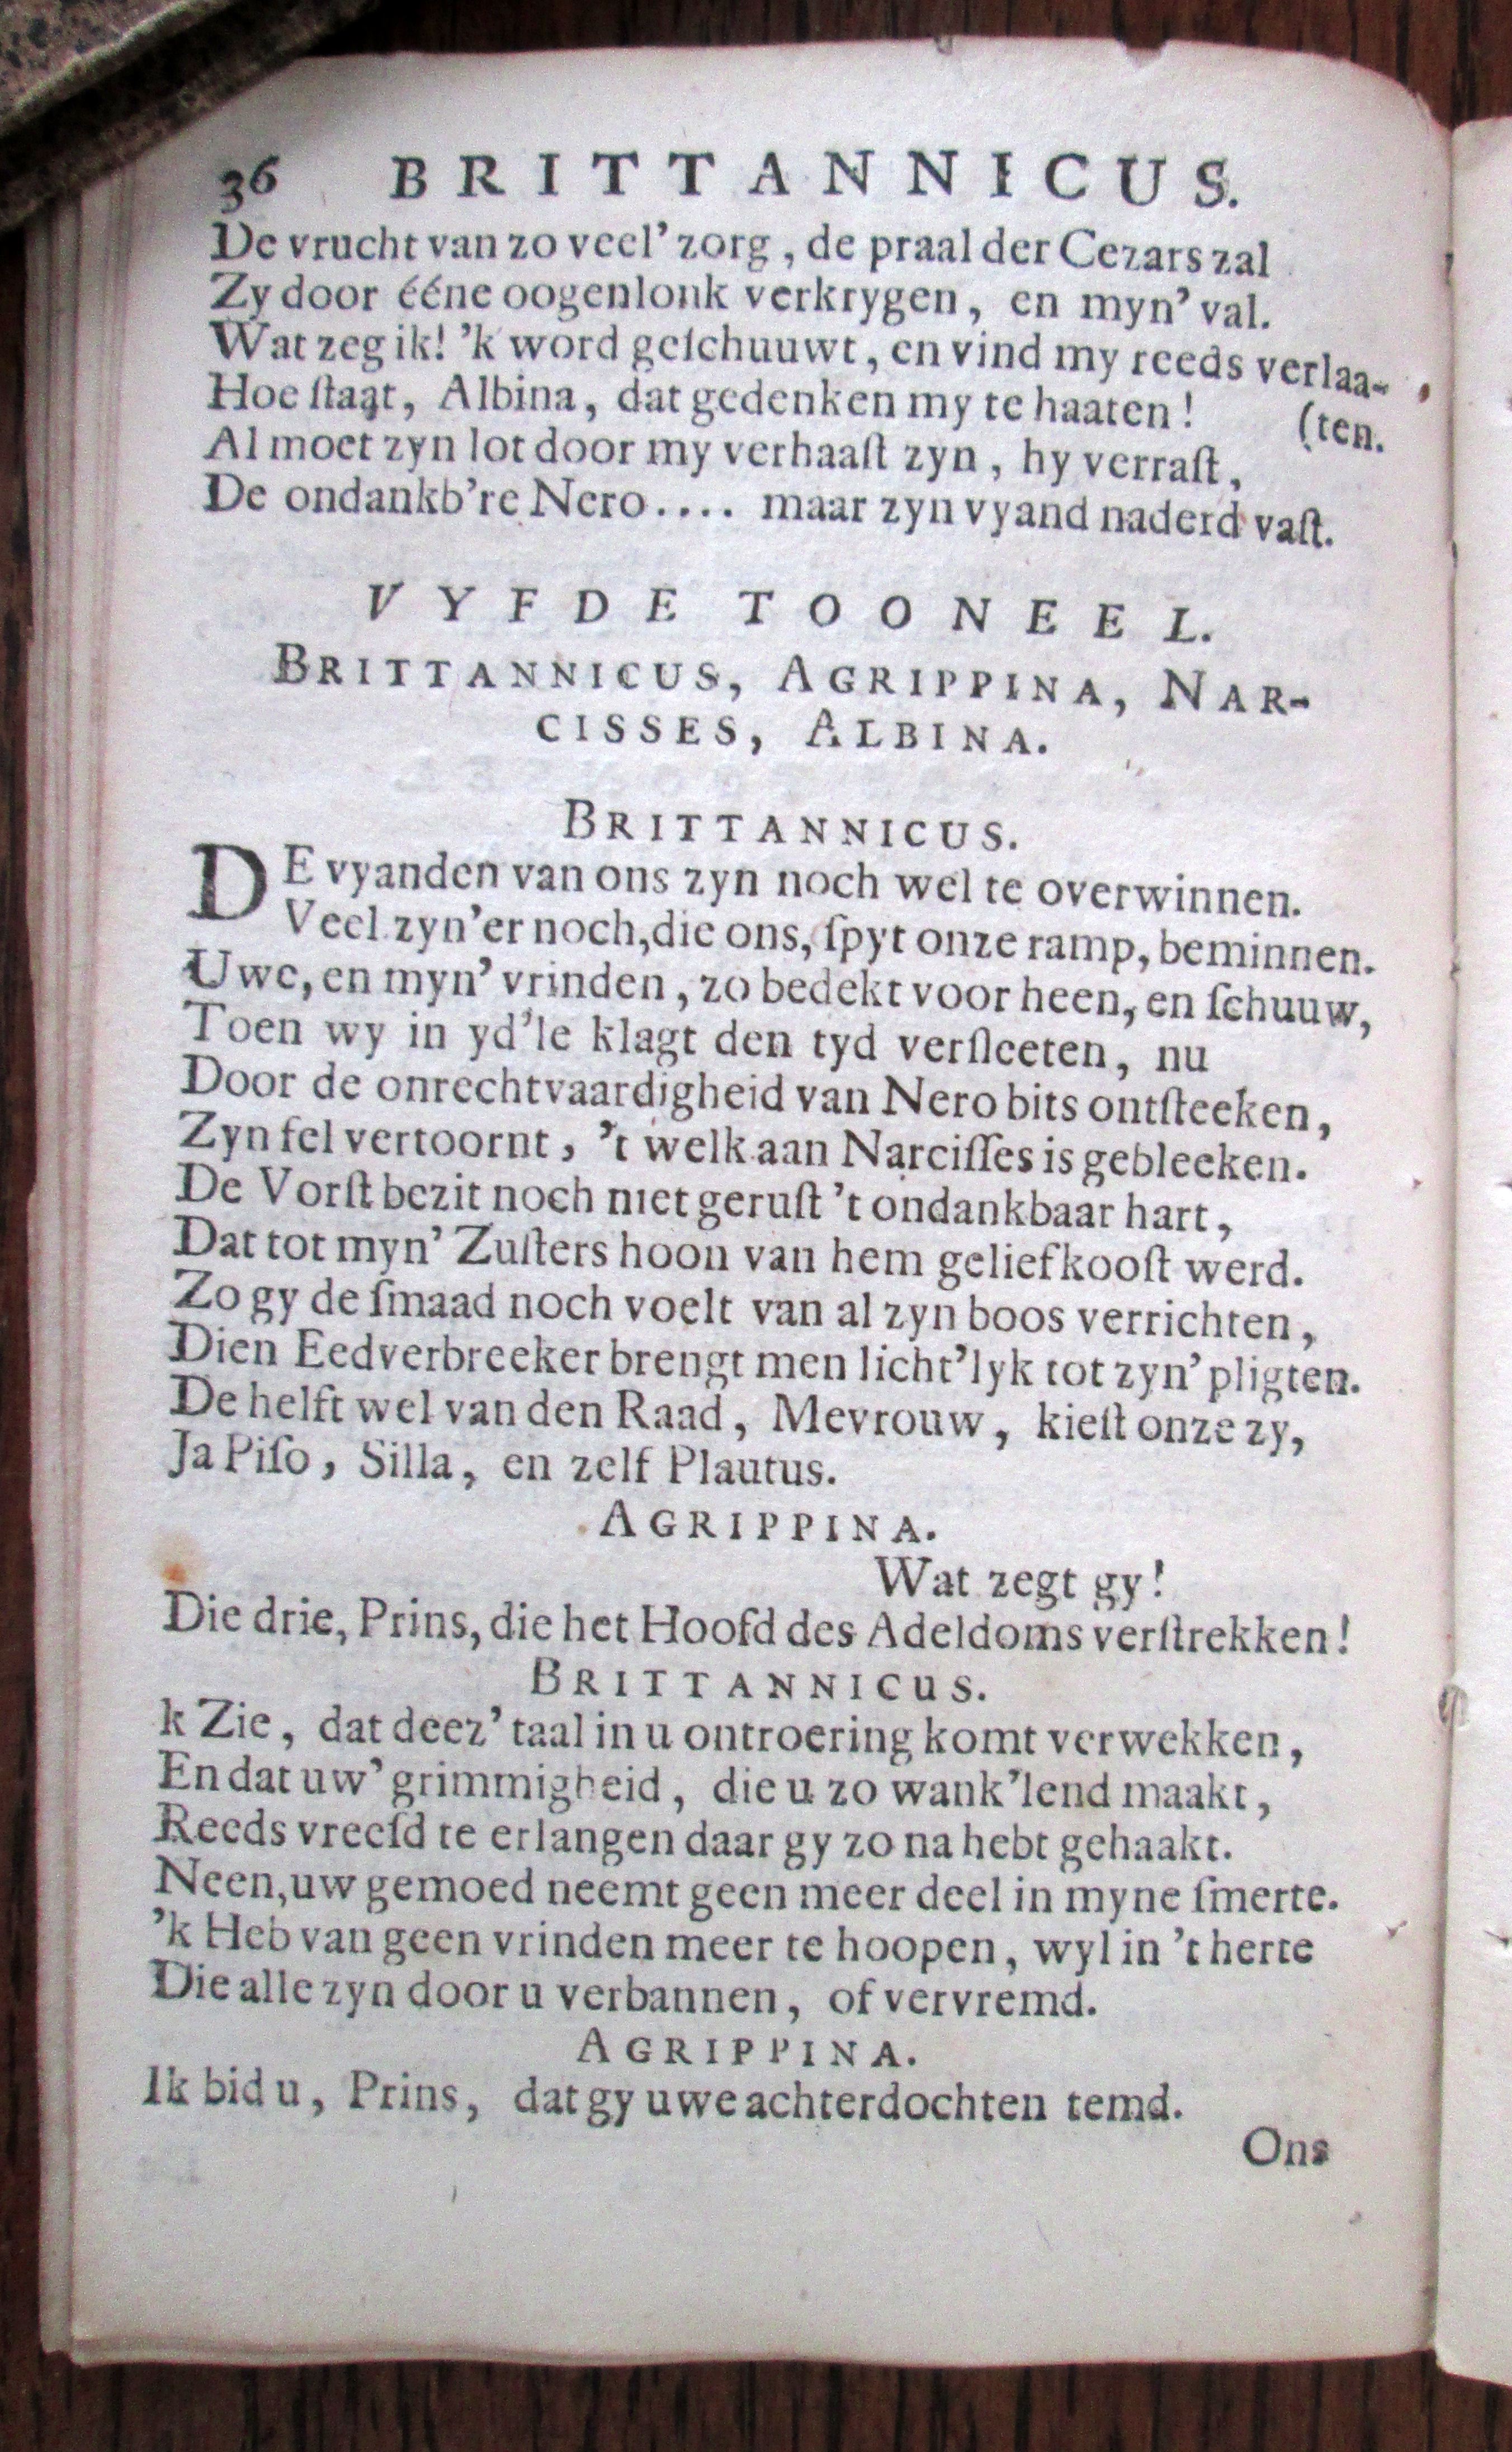 36 BRITTANNICUS.
De vrucht van zo veel' zorg, de praal der Cezars zal
Zy door ééne oogenlonk verkrygen, en myn' val.
Wat zeg ik! 'k word geſchuuwt, en vind my reeds verlaa-
Hoe ſtaat, Albina, dat gedenken my te haaten! (ten.
Al moet zyn lot door my verhaaſt zyn, hy verraſt,
De ondankb're Nero.... maar zyn vyand naderd vaſt.
VYFDE TOONEEL.
BRITTANNICUS, AGRIPPINA, NAR-
CISSES, ALBINA.
BRITTANNICUS.
DE vyanden van ons zyn noch wel te overwinnen.
Veel zyn'er noch, die ons, ſpyt onze ramp, beminnen.
Uwe, en myn' vrinden, zo bedekt voor heen, en ſchuuw,
Toen wy in yd'le klagt den tyd verſleeten, nu
Door de onrechtvaardigheid van Nero bits ontſteeken,
Zyn fel vertoornt, 't welk aan Narciſſes is gebleeken.
De Vorſt bezit noch niet geruſt 't ondankbaar hart,
Dat tot myn' Zuſters hoon van hem geliefkooſt werd.
Zo gy de ſmaad noch voelt van al zyn boos verrichten,
Dien Eedverbreeker brengt men licht'lyk tot zyn' pligten.
De helft wel van den Raad, Mevrouw, kieſt onze zy,
Ja Piſo, Silla, en zelf Plautus.
AGRIPPINA.
Wat zegt gy!
Die drie, Prins, die het Hoofd des Adeldoms verſtrekken!
BRITTANNICUS.
k Zie, dat deez' taal in u ontroering komt verwekken,
En dat uw' grimmigheid, die u zo wank'lend maakt,
Reeds vreeſd te erlangen daar gy zo na hebt gehaakt.
Neen, uw gemoed neemt geen meer deel in myne ſmerte.
'k Heb van geen vrinden meer te hoopen, wyl in 't herte
Die alle zyn door u verbannen, of vervremd.
AGRIPPINA.
Ik bid u, Prins, dat gy uwe achterdochten temd.
Ons